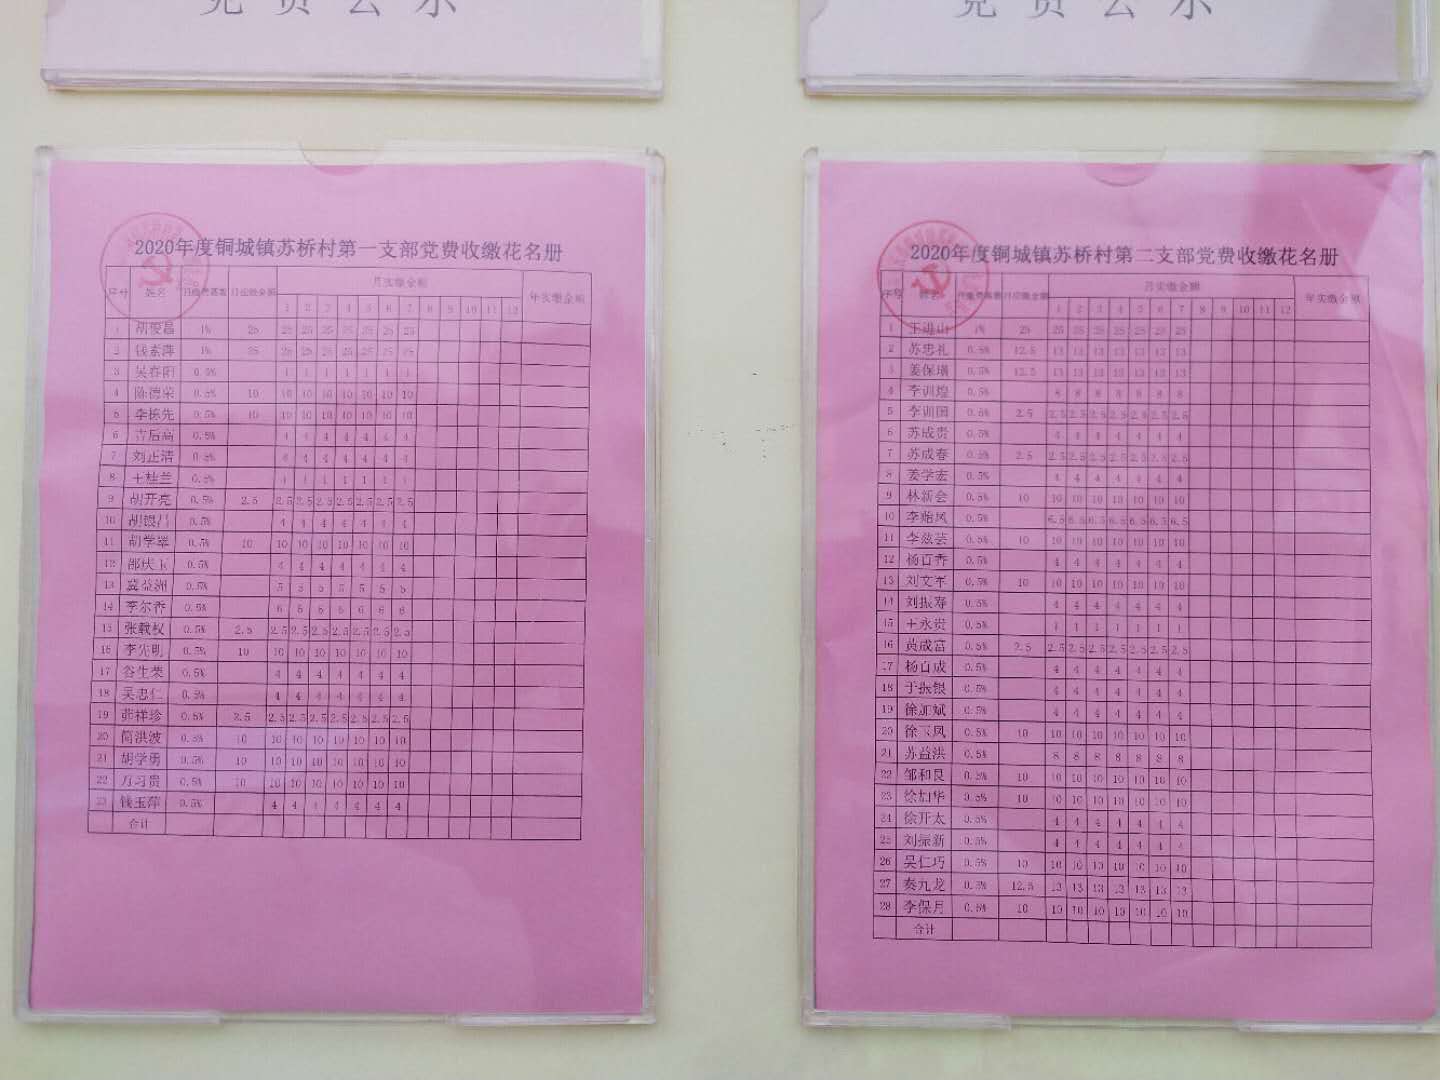 党费公示
党费公示
2020年度铜城镇苏桥村第一支部党费收缴花名册
序号 姓名 月缴费基数 月应缴金额 月实缴金额 年实缴金额
1 2 3 4 5 6 7 8 9 10 11 12
1 胡俊昌 1% 25 25 25 25 25 25 25 25
2 钱素萍 1% 25 25 25 25 25 25 25 25
3 吴春阳 0.5% 1 1 1 1 1 1 1
4 陈德荣 0.5% 10 10 10 10 10 10 10 10
5 李栋先 0.5% 10 10 10 10 10 10 10 10
6 吉后高 0.5% 4 4 4 4 4 4 4
7 刘正清 0.5% 4 4 4 4 4 4 4
8 王桂兰 0.5% 1 1 1 1 1 1 1
9 胡开亮 0.5% 2.5 2.5 2.5 2.5 2.5 2.5 2.5 2.5
10 胡银昌 0.5% 4 4 4 4 4 4 4
11 胡学翠 0.5% 10 10 10 10 10 10 10 10
12 邵庆玉 0.5% 4 4 4 4 4 4 4
13 益洲 0.5% 5 5 5 5 5 5 5
14 李尔香 0.5% 6 6 6 6 6 6 6
15 张载权 0.5% 2.5 2.5 2.5 2.5 2.5 2.5 2.5 2.5
16 李先明 0.5% 10 10 10 10 10 10 10 10
17 谷生荣 0.5% 4 4 4 4 4 4 4
18 吴忠仁 0.5% 4 4 4 4 4 4 4
19 茆祥珍 0.5% 2.5 2.5 2.5 2.5 2.5 2.5 2.5 2.5
20 简洪波 0.5% 10 10 10 10 10 10 10 10
21 胡学勇 0.5% 10 10 10 10 10 10 10 10
22 万习贵 0.5% 10 10 10 10 10 10 10 10
23 钱玉萍 0.5% 4 4 4 4 4 4 4
合计
2020年度铜城镇苏桥村第二支部党费收缴花名册
序号 姓名 月缴费基数 月应缴金额 月实缴金额 年实缴金额
1 2 3 4 5 6 7 8 9 10 11 12
1 王进山 1% 25 25 25 25 25 25 25 25
2 苏忠礼 0.5% 12.5 13 13 13 13 13 13 13
3 姜保瑞 0.5% 12.5 13 13 13 13 13 13 13
4 李训煌 0.5% 8 8 8 8 8 8 8
5 李训国 0.5% 2.5 2.5 2.5 2.5 2.5 2.5 2.5 2.5
6 苏成贵 0.5% 4 4 4 4 4 4 4
7 苏成春 0.5% 2.5 2.5 2.5 2.5 2.5 2.5 2.5 2.5
8 姜学宏 0.5% 4 4 4 4 4 4 4
9 林新会 0.5% 10 10 10 10 10 10 10 10
10 李贻凤 0.5% 6.5 6.5 6.5 6.5 6.5 6.5 6.5
11 李滋芸 0.5% 10 10 10 10 10 10 10 10
12 杨百香 0.5% 4 4 4 4 4 4 4
13 刘文军 0.5% 10 10 10 10 10 10 10 10
14 刘振寿 0.5% 4 4 4 4 4 4 4
15 王永贵 0.5% 1 1 1 1 1 1 1
16 黄成富 0.5% 2.5 2.5 2.5 2.5 2.5 2.5 2.5 2.5
17 杨百成 0.5% 4 4 4 4 4 4 4
18 于振银 0.5% 4 4 4 4 4 4 4
19 徐加斌 0.5% 4 4 4 4 4 4 4
20 徐玉凤 0.5% 10 10 10 10 10 10 10 10
21 苏益洪 0.5% 8 8 8 8 8 8 8
22 邹和良 0.5% 10 10 10 10 10 10 10 10
23 徐加华 0.5% 10 10 10 10 10 10 10 10
24 徐开太 0.5% 4 4 4 4 4 4 4
25 刘振新 0.5% 4 4 4 4 4 4 4
26 吴仁巧 0.5% 10 10 10 10 10 10 10 10
27 秦九龙 0.5% 12.5 13 13 13 13 13 13 13
28 李保月 0.5% 10 10 10 10 10 10 10 10
合计